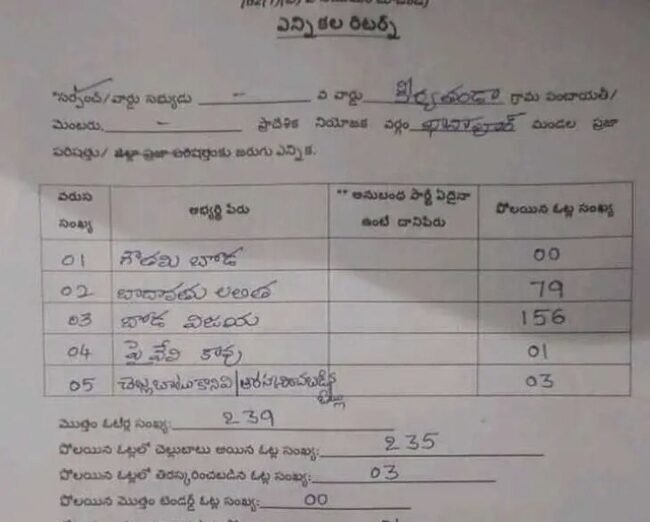 ఎన్నికల రిటర్న్
*సర్పంచ్/వార్డు సభ్యుడు - వ వార్డు గ్రామ పంచాయతీ/
మెంబరు. - ప్రాదేశిక నియోజక వర్గం మండల ప్రజా
పరిషత్తు/ జిల్లా ప్రజా పరిషత్తుకు జరుగు ఎన్నిక.
వరుస సంఖ్య అభ్యర్థి పేరు ** అనుబంధ పార్టీ ఏదైనా ఉంటే దానిపేరు పోలయిన ఓట్ల సంఖ్య
01 గౌతమి బోడ 00
02 బాదావతు లలిత 79
03 బోడ విజయ 156
04 పై వేవి కావు 01
05 చెల్లుబాటుకానివి/ 03
మొత్తం ఓటర్ల సంఖ్య: 239
పోలయిన ఓట్లలో చెల్లుబాటు అయిన ఓట్ల సంఖ్య: 235
పోలయిన ఓట్లలో తిరస్కరించబడిన ఓట్ల సంఖ్య: 03
పోలయిన మొత్తం టెండర్డ్ ఓట్ల సంఖ్య: 00